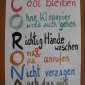 Cool bleiben
Ohne Klopapier
wird auch gehen
Richtig Hände
waschen
Oma &
Opa anrufen
Nicht verzagen